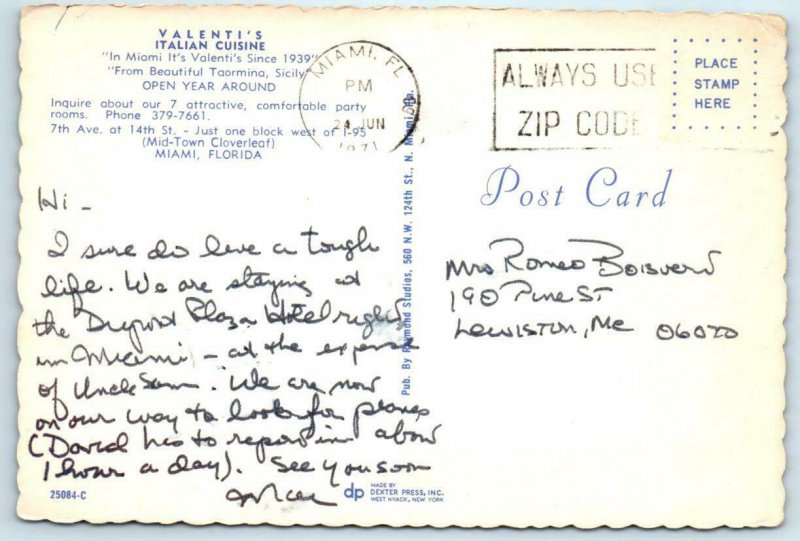 VALENTI'S
ITALIAN CUISINE
"In Miami It's Valenti's Since 1939"
"From Beautiful Taormina, Sicily"
OPEN YEAR AROUND
Inquire about our 7 attractive, comfortable party
rooms. Phone 379-7661.
7th Ave. at 14th St. - Just one block west of I-95
(Mid-Town Cloverleaf)
MIAMI, FLORIDA
MIAMI, FL
PM
24 JUN
1971
ALWAYS USE
ZIP CODE
PLACE
STAMP
HERE
Post Card
Hi -
I sure do live a tough
life. We are staying at
the Dupont Plaza Hotel right
in Miami - at the expense
of Uncle Sam. We are now
on our way to look for planes
(David has to report in about
1 hour a day). See you soon
Mrs Romeo Boisvert
190 Pine ST
Lewiston, Me
Pub. By Raymond Studios, 560 N.W. 124th St., N. Miami, Fla.
25084-C
dp
MADE BY
DEXTER PRESS, INC.
WEST NYACK, NEW YORK